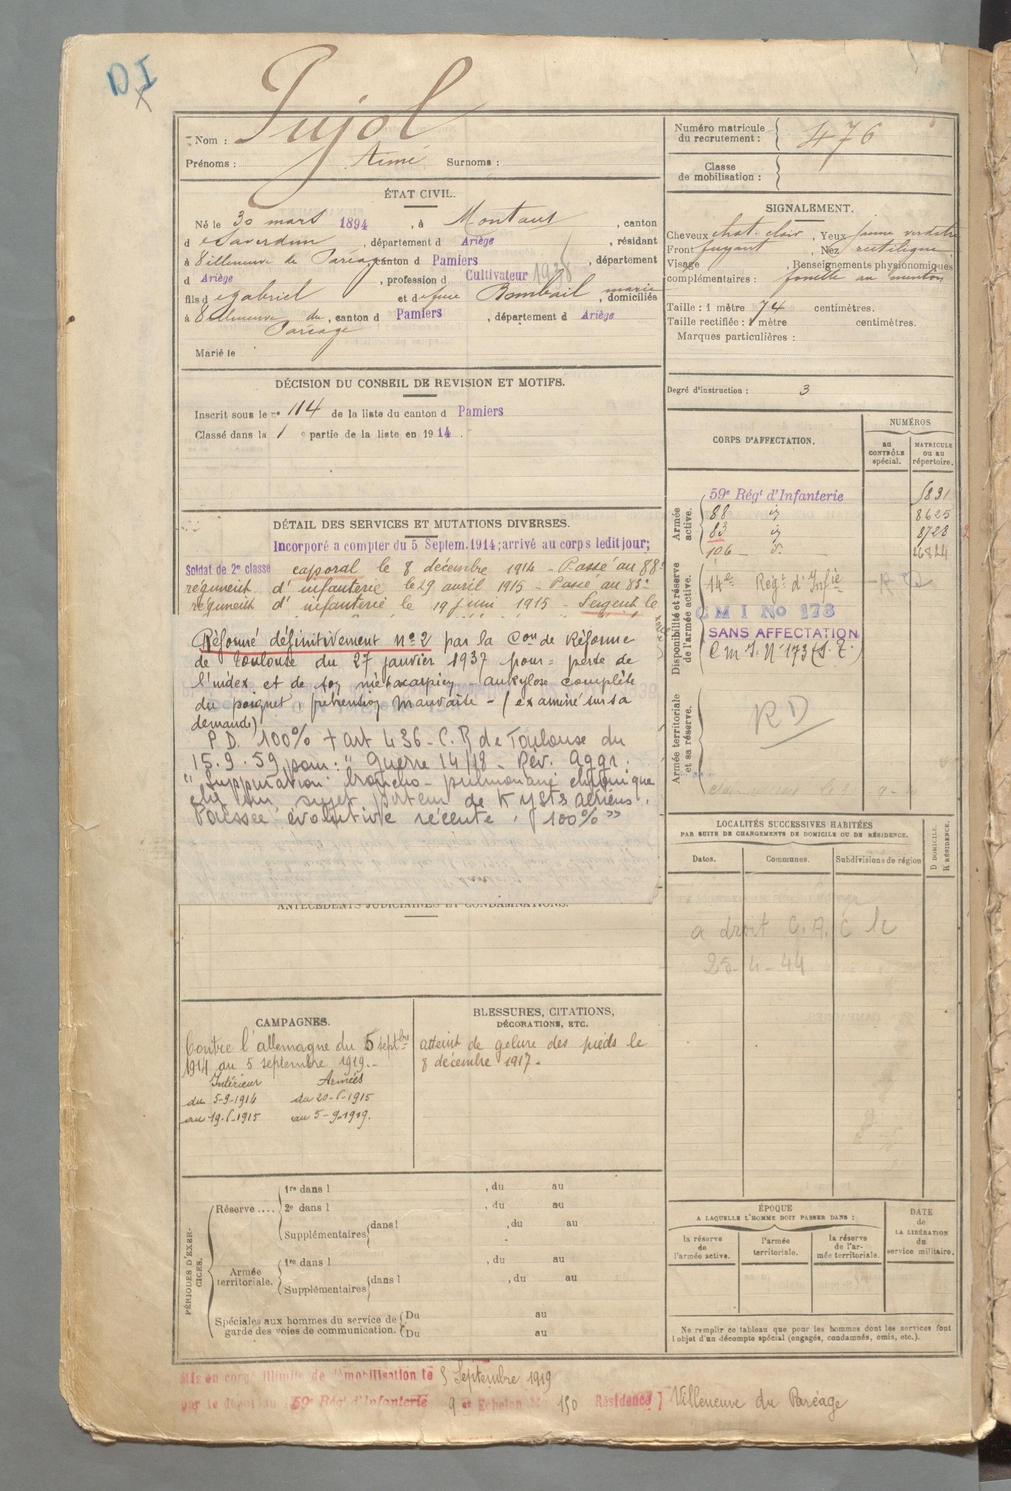 DI
Nom : Pujol
Prénoms : Aimé Surnoms :
ÉTAT CIVIL.
Né le 30 mars 1894, à Montaut, canton
d e Saverdun, département d Ariège, résidant
à Villeneuve du Paréage canton d Pamiers, département
d Ariège, profession d Cultivateur
fils d e Gabriel et d e feue Bombail marie, domiciliés
à Villeneuve du Paréage, canton d Pamiers, département d Ariège
Marié le
DÉCISION DU CONSEIL DE REVISION ET MOTIFS.
Inscrit sous le n° 114 de la liste du canton d Pamiers
Classé dans la 1 e partie de la liste en 1914.
DÉTAIL DES SERVICES ET MUTATIONS DIVERSES.
Incorporé a compter du 5 Septem. 1914; arrivé au corps ledit jour;
Soldat de 2e classe caporal le 8 décembre 1914 - Passé au 88e
régiment d'infanterie le 29 avril 1915 - Passé au 83e
régiment d'infanterie le 19 juin 1915 - Sergent le
Réformé définitivement n° 2 par la Con de Réforme
de Toulouse du 27 janvier 1937 pour = perte de
l'index et de son métacarpien - ankylose complète
du poignet, préhension mauvaise - (examiné sur sa
demande)
P.D. 100% + art 436 - C.R de Toulouse du
15.9.59 pour: "Guerre 14/18 - Rev. Aggr.
"Suppuration broncho-pulmonaire chronique
chez un sujet porteur de Kystes aériens.
Poussée évolutive récente. 100%"
ANTÉCÉDENTS JUDICIAIRES ET CONDAMNATIONS.
CAMPAGNES.
Contre l'allemagne du 5 septbre
1914 au 5 septembre 1919.-
Intérieur Armées
du 5-9-1914 du 20-6-1915
au 19-6-1915 au 5-9-1919.
BLESSURES, CITATIONS,
DÉCORATIONS, ETC.
atteint de gelure des pieds le
8 décembre 1917.
PÉRIODES D'EXERCICES.
Réserve .... 1re dans l , du au
2e dans l , du au
Supplémentaires dans l , du au
Armée territoriale. 1re dans l , du au
Supplémentaires dans l , du au
Spéciales aux hommes du service de garde des voies de communication. Du au
Du au
Mis en congé illimité de démobilisation le 5 Septembre 1919
par le dépôt du 59e Régt d'Infanterie 9e Echelon N° 150 Résidence Villeneuve du Paréage
Numéro matricule du recrutement : 476
Classe de mobilisation :
SIGNALEMENT.
Cheveux chat. clair, Yeux jaune verdâtre
Front fuyant, Nez rectiligne
Visage , Renseignements physionomiques
complémentaires : fossette au menton
Taille : 1 mètre 74 centimètres.
Taille rectifiée : 1 mètre centimètres.
Marques particulières :
Degré d'instruction : 3
CORPS D'AFFECTATION.
NUMÉROS
au CONTRÔLE spécial.
MATRICULE ou au répertoire.
Armée active.
59e Régt d'Infanterie 5831
88 id 8625
83 id 8723
106 - d°
Disponibilité et réserve de l'armée active.
14e Régt d'Infie
CMI No 173
SANS AFFECTATION
C m I. N° 173 (S.E.)
Armée territoriale et sa réserve.
RD
LOCALITÉS SUCCESSIVES HABITÉES
PAR SUITE DE CHANGEMENTS DE DOMICILE OU DE RÉSIDENCE.
Dates. Communes. Subdivisions de région
D DOMICILE. R RÉSIDENCE.
a droit C.A.C le
25-4-44
ÉPOQUE
A LAQUELLE L'HOMME DOIT PASSER DANS :
la réserve de l'armée active.
l'armée territoriale.
la réserve de l'armée territoriale.
DATE de LA LIBÉRATION du service militaire.
Ne remplir ce tableau que pour les hommes dont les services font
l'objet d'un décompte spécial (engagés, condamnés, omis, etc.).